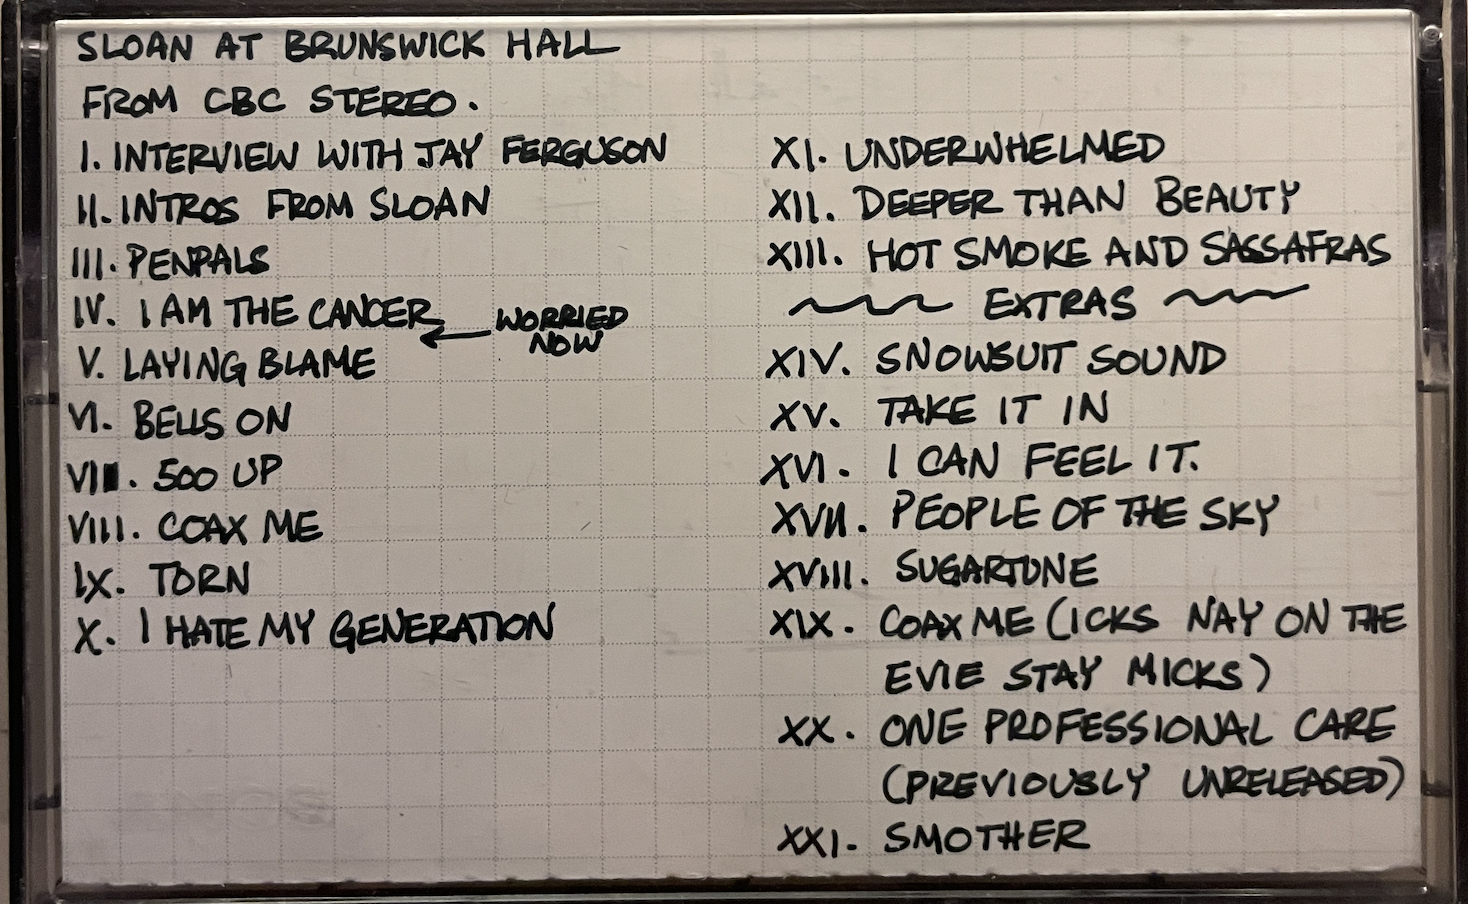 SLOAN AT BRUNSWICK HALL
FROM CBC STEREO.
I. INTERVIEW WITH JAY FERGUSON
II. INTROS FROM SLOAN
III. PENPALS
IV. I AM THE CANCER
← WORRIED
NOW
V. LAYING BLAME
VI. BELLS ON
VII. 500 UP
VIII. COAX ME
IX. TORN
X. I HATE MY GENERATION
XI. UNDERWHELMED
XII. DEEPER THAN BEAUTY
XIII. HOT SMOKE AND SASSAFRAS
EXTRAS
XIV. SNOWSUIT SOUND
XV. TAKE IT IN
XVI. I CAN FEEL IT.
XVII. PEOPLE OF THE SKY
XVIII. SUGARTUNE
XIX. COAX ME (ICKS NAY ON THE
EVIE STAY MICKS)
XX. ONE PROFESSIONAL CARE
(PREVIOUSLY UNRELEASED)
XXI. SMOTHER